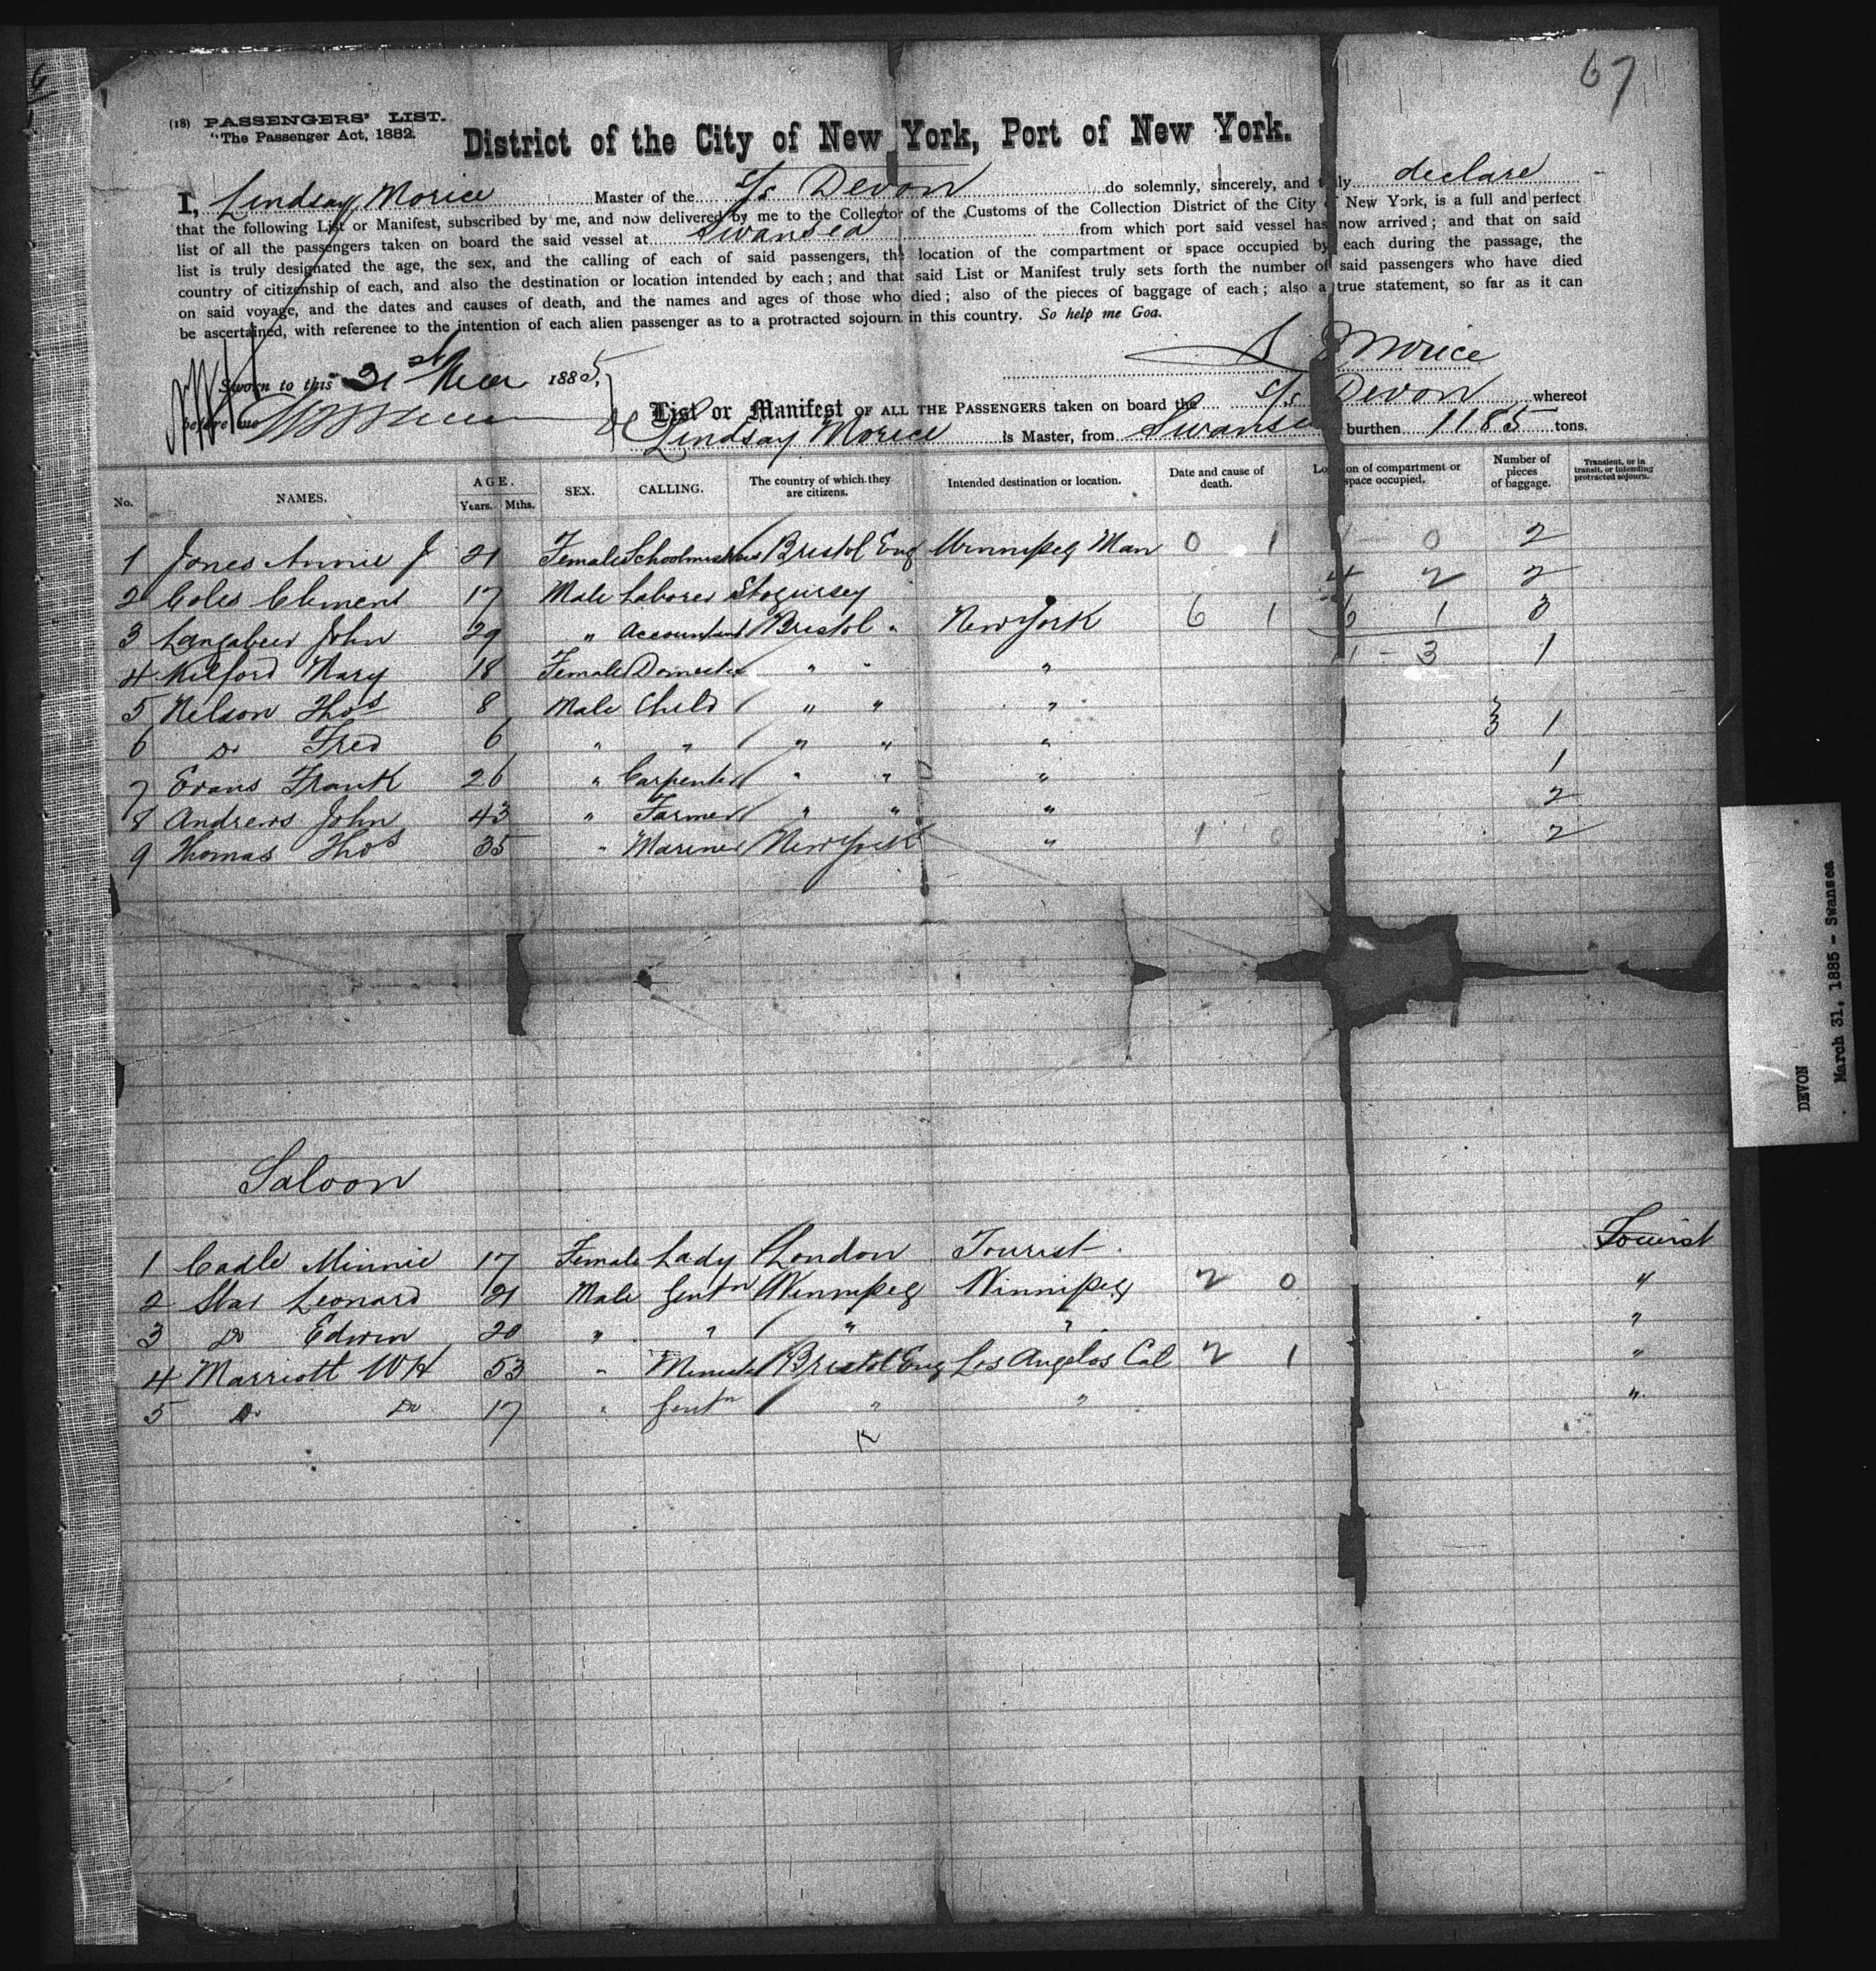 6
67
(18) PASSENGERS' LIST.
"The Passenger Act, 1882.
District of the City of New York, Port of New York.
I, Lindsay Morice Master of the S/s Devon do solemnly, sincerely, and ly declare
that the following List or Manifest, subscribed by me, and now delivered by me to the Collector of the Customs of the Collection District of the City New York, is a full and perfect
list of all the passengers taken on board the said vessel at Swansea from which port said vessel has now arrived; and that on said
list is truly designated the age, the sex, and the calling of each of said passengers, the location of the compartment or space occupied by each during the passage, the
country of citizenship of each, and also the destination or location intended by each; and that said List or Manifest truly sets forth the number of said passengers who have died
on said voyage, and the dates and causes of death, and the names and ages of those who died; also of the pieces of baggage of each; also a true statement, so far as it can
be ascertained, with reference to the intention of each alien passenger as to a protracted sojourn in this country. So help me God.
Morice
Sworn to this 31st Mar 1885,
before me
List or Manifest OF ALL THE PASSENGERS taken on board the S/s Devon whereof
Lindsay Morice is Master, from Swansea burthen 1185 tons.
No. NAMES. AGE. Years. Mths. SEX. CALLING. The country of which they are citizens. Intended destination or location. Date and cause of death. Lo on of compartment or space occupied. Number of pieces of baggage. Transient, or in transit, or intending protracted sojourn.
1 Jones Annie J 21 Female Schoolmistress Bristol Eng Winnipeg Man 0 1 0 2
2 Coles Clement 17 Male Laborer Stogursey 4 2 2
3 Langabeer John 29 " Accountant Bristol " New York 6 1 6 1 3
4 Milford Mary 18 Female Domestic " " " 11 - 3 1
5 Nelson Thos 8 Male Child " " "
6 Do Fred 6 " " " " " } 1
7 Evans Frank 26 " Carpenter " " " 1
8 Andrews John 43 " Farmer " " " 2
9 Thomas Thos 35 " Mariner New York " 1 0 2
Saloon
1 Cadle Minnie 17 Female Lady London Tourist Tourist
2 Star Leonard 21 Male Gentn Winnipeg Winnipeg 2 0 "
3 Do Edwin 20 " " " " "
4 Marriott W H 53 " Minister Bristol Eng Los Angelos Cal 2 1 "
5 Do Do 17 " Gentn " " "
DEVON
March 31, 1885 - Swansea